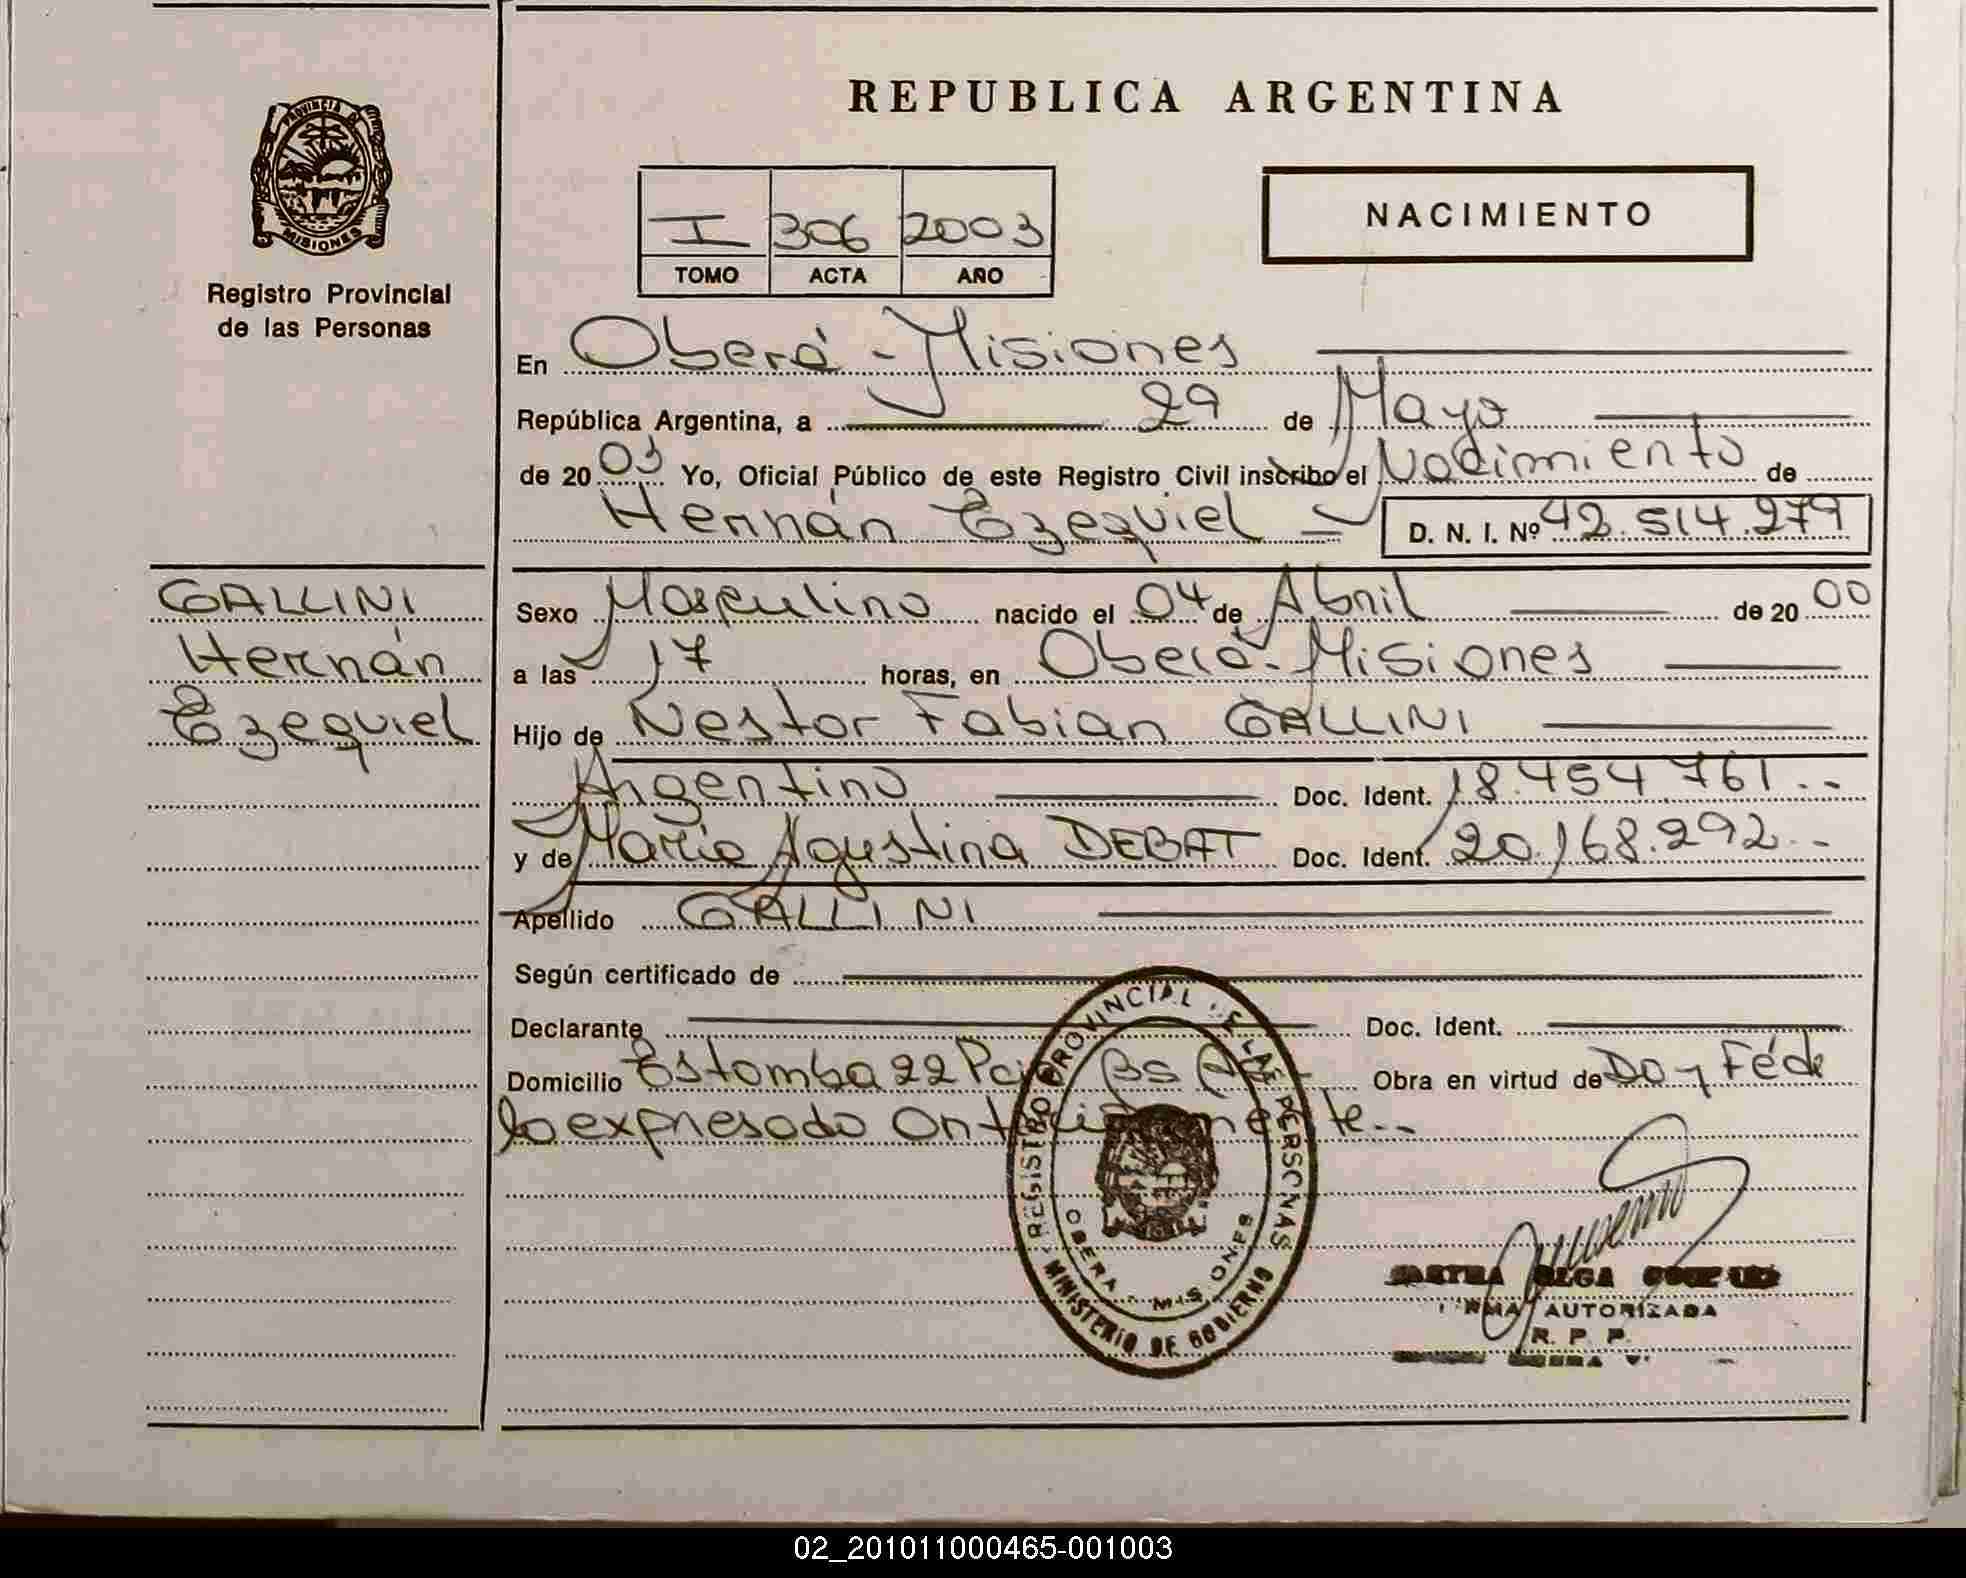 PROVINCIA DE
MISIONES
Registro Provincial
de las Personas
REPUBLICA ARGENTINA
I 306 2003
TOMO ACTA AÑO
NACIMIENTO
En Oberá - Misiones
República Argentina, a 29 de Mayo
de 2003 Yo, Oficial Público de este Registro Civil inscribo el Nacimiento de
Hernán Ezequiel D. N. I. Nº 42.514.279
GALLINI
Hernán
Ezequiel
Sexo Masculino nacido el 04 de Abril de 2000
a las 17 horas, en Oberá - Misiones
Hijo de Nestor Fabian GALLINI
Argentino Doc. Ident. 18.454.761.--
y de María Agustina DEBAT Doc. Ident. 20.168.292.--
Apellido GALLINI
Según certificado de
Declarante Doc. Ident.
Domicilio Estomba 22 Bs Obra en virtud de Doy Fé de
lo expresado anteriormente.--
REGISTRO PROVINCIAL DE LAS PERSONAS
OBERA - MISIONES
MINISTERIO DE GOBIERNO
OLGA
FIRMA AUTORIZADA
R. P. P.
02_201011000465-001003